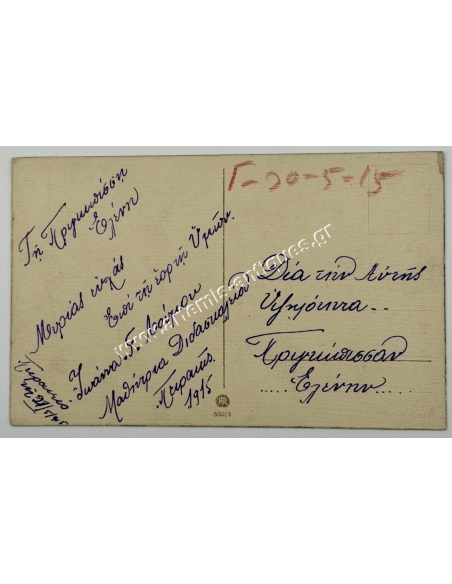 Τῇ Πριγκιπίσσῃ
Ἑλένῃ
Μυρίας εὐχὰς
Ἐπὶ τῇ ἑορτῇ Ὑμῶν.
Ἰωάννα Γ.
Μαθήτρια Διδασκαλείου
Πειραιῶς.
1915
Πειραιεὺς
Γ-20-5-15
Διὰ τὴν Αὐτῆς
Ὑψηλότητα..
Πριγκίπισσαν
.....Ἑλένην....
550/3
www.nemesis-antiques.gr